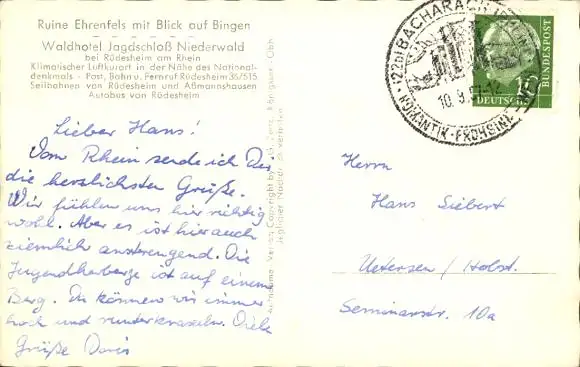 Ruine Ehrenfels mit Blick auf Bingen
Waldhotel Jagdschloß Niederwald
bei Rüdesheim am Rhein
Klimatischer Luftkurort in der Nähe des National-
denkmals - Post, Bahn u. Fernruf Rüdesheim 36/515
Seilbahnen von Rüdesheim und Aßmannshausen
Autobus von Rüdesheim
Lieber Hans!
Vom Rhein sende ich Dir
die herzlichsten Grüße.
Wir fühlen uns hier richtig
wohl. Aber es ist hier auch
ziemlich anstrengend. Die
Jugendherberge ist auf einem
Berg. Da können wir immer
hoch und runterkraxeln. Viele
Grüße Doris
Verlag Copyright by
(22b) BACHARACH
10.9.57-12
ROMANTIK · FROHSINN
DEUTSCHE
BUNDESPOST
Herrn
Hans Siebert
Uetersen / Holst.
Seminarstr. 10a